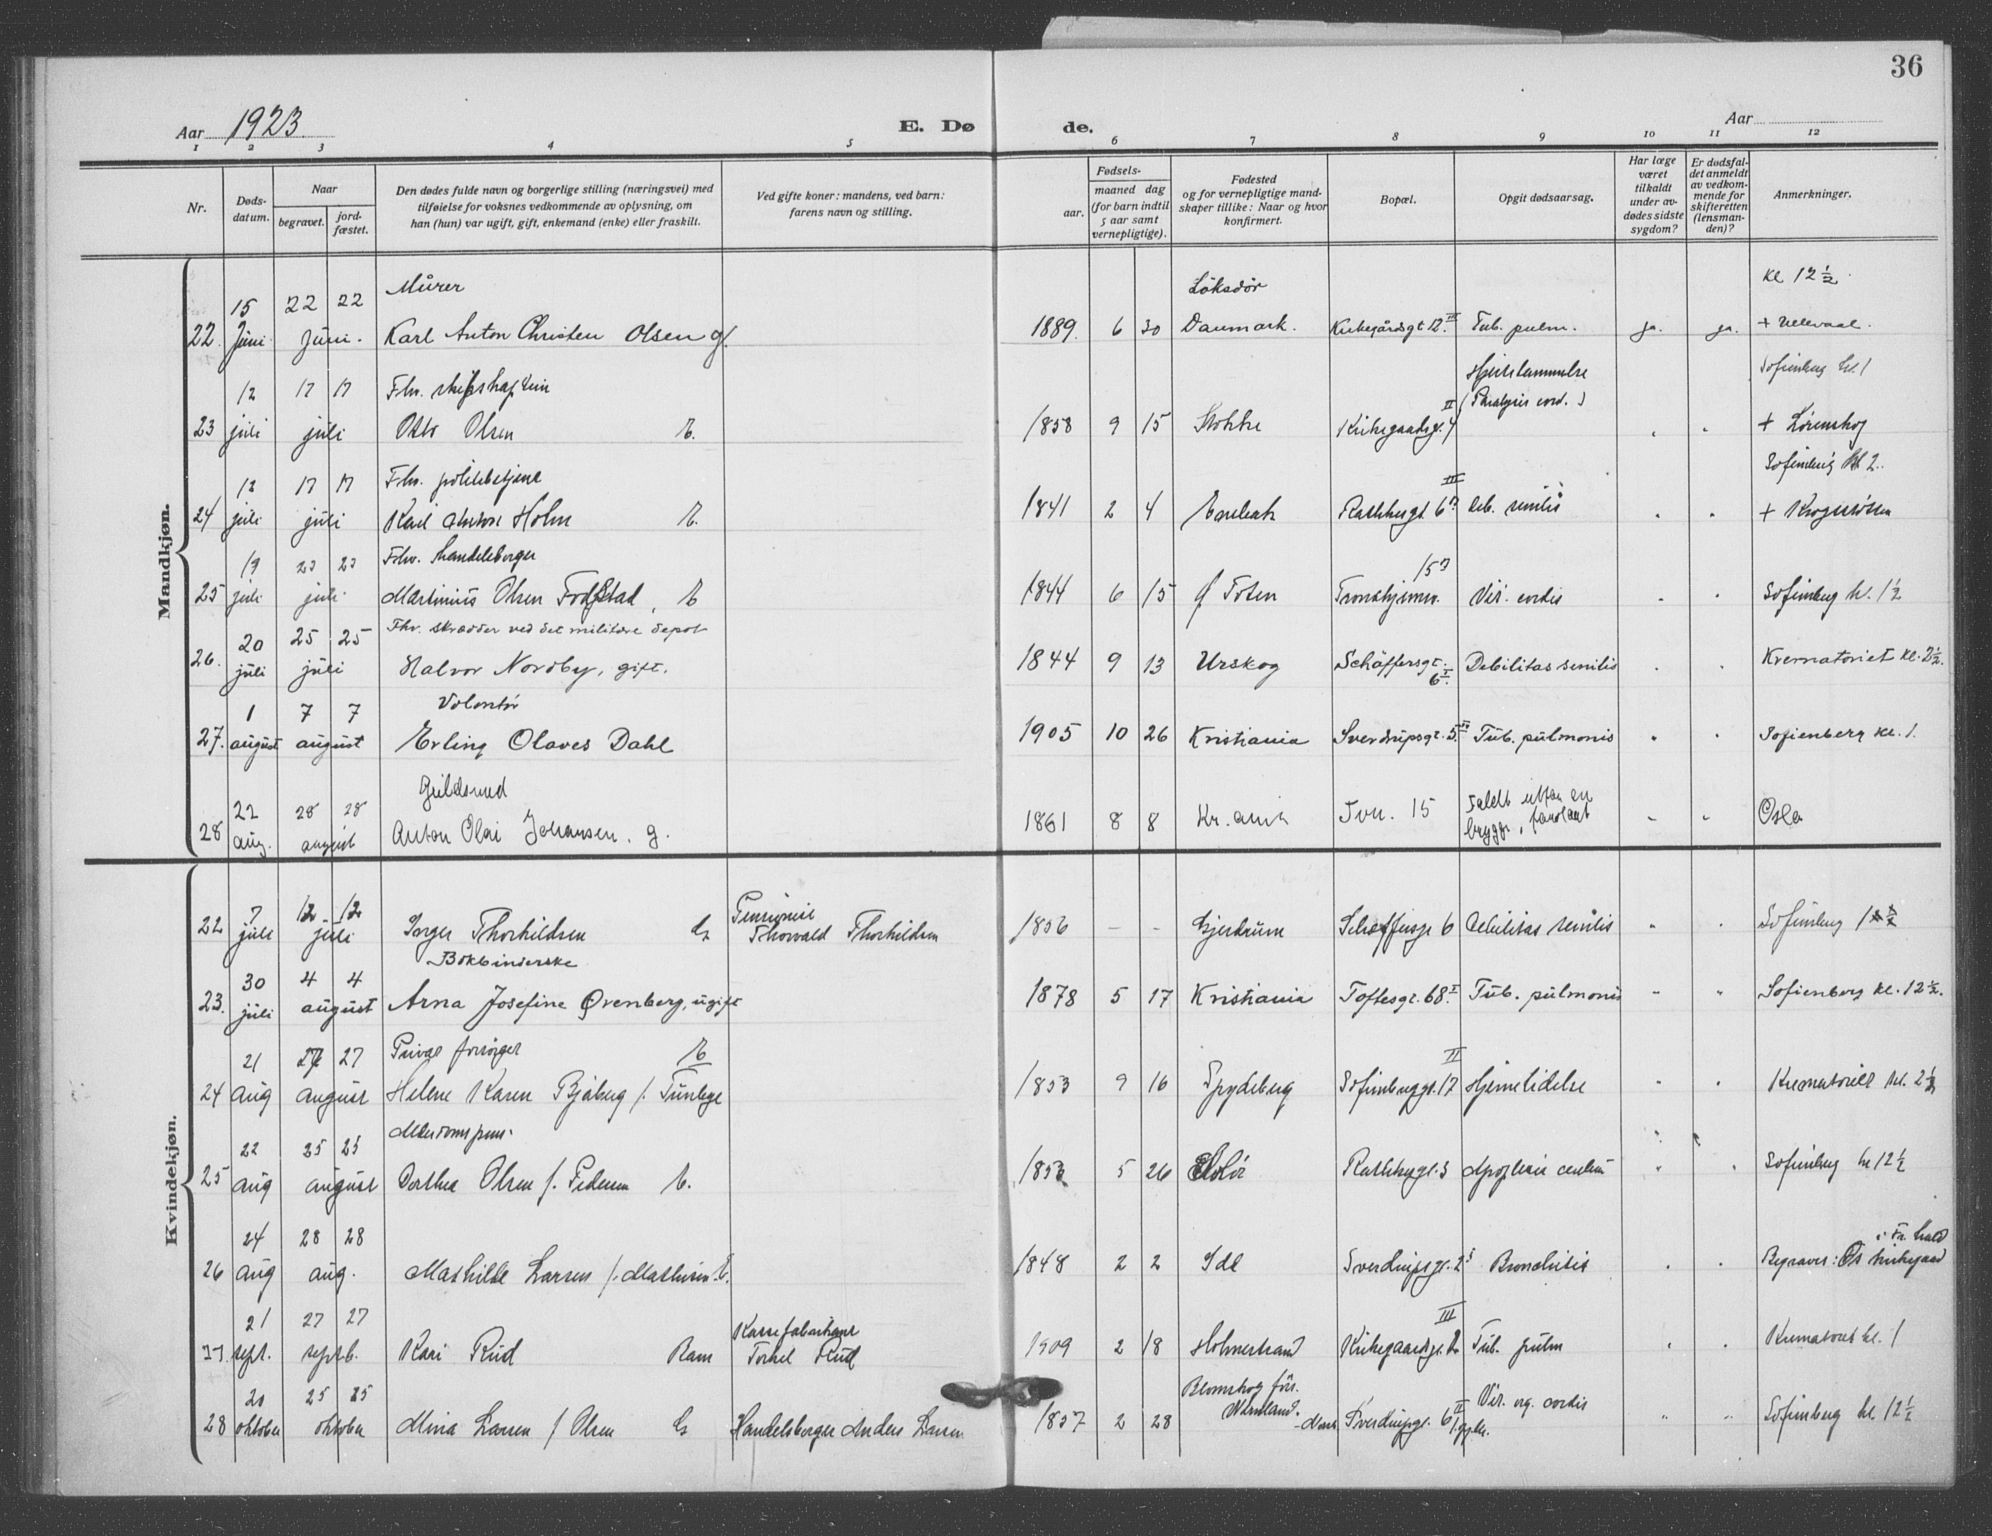 36
Aar 1923
E. Dø de.
Aar
1 2 3 4 5 6 7 8 9 10 11 12
Nr.
Døds-
datum.
Naar
begravet.
jord-
fæstet.
Den dødes fulde navn og borgerlige stilling (næringsvei) med
tilføielse for voksnes vedkommende av oplysning, om
han (hun) var ugift, gift, enkemand (enke) eller fraskilt.
Ved gifte koner: mandens, ved barn:
farens navn og stilling.
Fødsels-
aar.
maaned dag
(for barn indtil
5 aar samt
vernepligtige).
Fødested
og for vernepligtige mand-
skaper tillike: Naar og hvor
konfirmert.
Bopæl.
Opgit dødsaarsag.
Har læge
været
tilkaldt
under av-
dødes sidste
sygdom?
Er dødsfal-
det anmeldt
av vedkom-
mende for
skifteretten
(lensman-
den)?
Anmerkninger.
Mandkjøn.
15 22 22 Mürer kl 12 1/2
22. Juni Juni. Karl Anton Christen Olsen g. 1889. 6 30 Danmark. Kirkegårdsgt 12 II Tub. pulm. ja. ja. + Ullevaal.
12 17 17 Fhv. skibskaptein Hjertelammelse Sofienberg kl. 1
(Paralysis cord.)
23 juli juli Otto Olsen E. 1858 9 15 Stokke Kirkegaardsgt. 4 II + Lørenskog
12 17 17 Fhv. politibetjent Sofienberg kl 2.
24 juli juli Karl Anton Holm E. 1841 2 4 Enebak Rathkesgt. 6 III Deb. senilis +
19 23 23 Fhv. handelsborger
25 juli juli Martinius Olsen Fodstad, E 1844 6 15 Ø Toten Trondhjemsv. 15 Vit. cordis Sofienberg kl. 1 1/2
20 25 25 Fhv. skrædder ved det militære depot
26. juli juli Halvor Nordby, gift. 1844 9 13 Urskog Schäffersgt. 6 I. Debilitas senilis Krematoriet kl. 2 1/2.
1 7 7 Volontør
27. august august Erling Olaves Dahl 1905 10 26 Kristiania Sverdrupsgt. 5. Tub. pulmonis Sofienberg kl. 1.
22 28 28 Guldsmed
28 aug. august Anton Olai Johansen. g. 1861 8 8 Kr.ania Tvn. 15 Faldt utfor en brygge, Oslo
Kvindekjøn.
7 12 12 Pensionist
22 juli juli Inger Thorkildsen G Thorvald Thorkildsen 1856 - - Gjerdrum Schæffersgt 6 Debilitas senilis Sofienberg
30 4 4 Bokbinderske
23. juli august Arna Josefine Ørenberg, ugift 1878 5 17 Kristiania Toftesgt. 68. I Tub. pulmonis Sofienberg kl. 12 1/2.
21 27 27 Privat forsørget E
24 aug august Helene Karen Bjåberg f. Tunbye 1853 9 16 Spydeberg Sofienberggt. 17 II Hjertelidelse Krematoriet kl. 2 1/2
22 25 25
25 aug august Dorthea Olsen f. Pedersen E. 5 26 Rathkesgt. 3 Apoplexia cerebri Sofienberg kl 12 1/2
24 28 28
26 aug aug. Mathilde Larsen f. Mathisen. E. 1848 2 2 Idd Sverdrupsgt. 2 Bronchitis Begraves: Os kirkegaard i Fr. hald
21 27 27
27. sept. septb. Kari Rud Barn Kassefabrikant Torkel Rud 1909 2 18 Holmestrand Kirkegaardsgt. III Tub. pulm Krematoriet kl. 1
20 25 25
28 oktober oktober Mina Larsen f Olsen G Handelsborger Anders Larsen 1857 2 28 Blomskog förs. Wärmland. Sverdrupsgt. 6 II Vit. org. cordis Sofienberg kl. 12 1/2